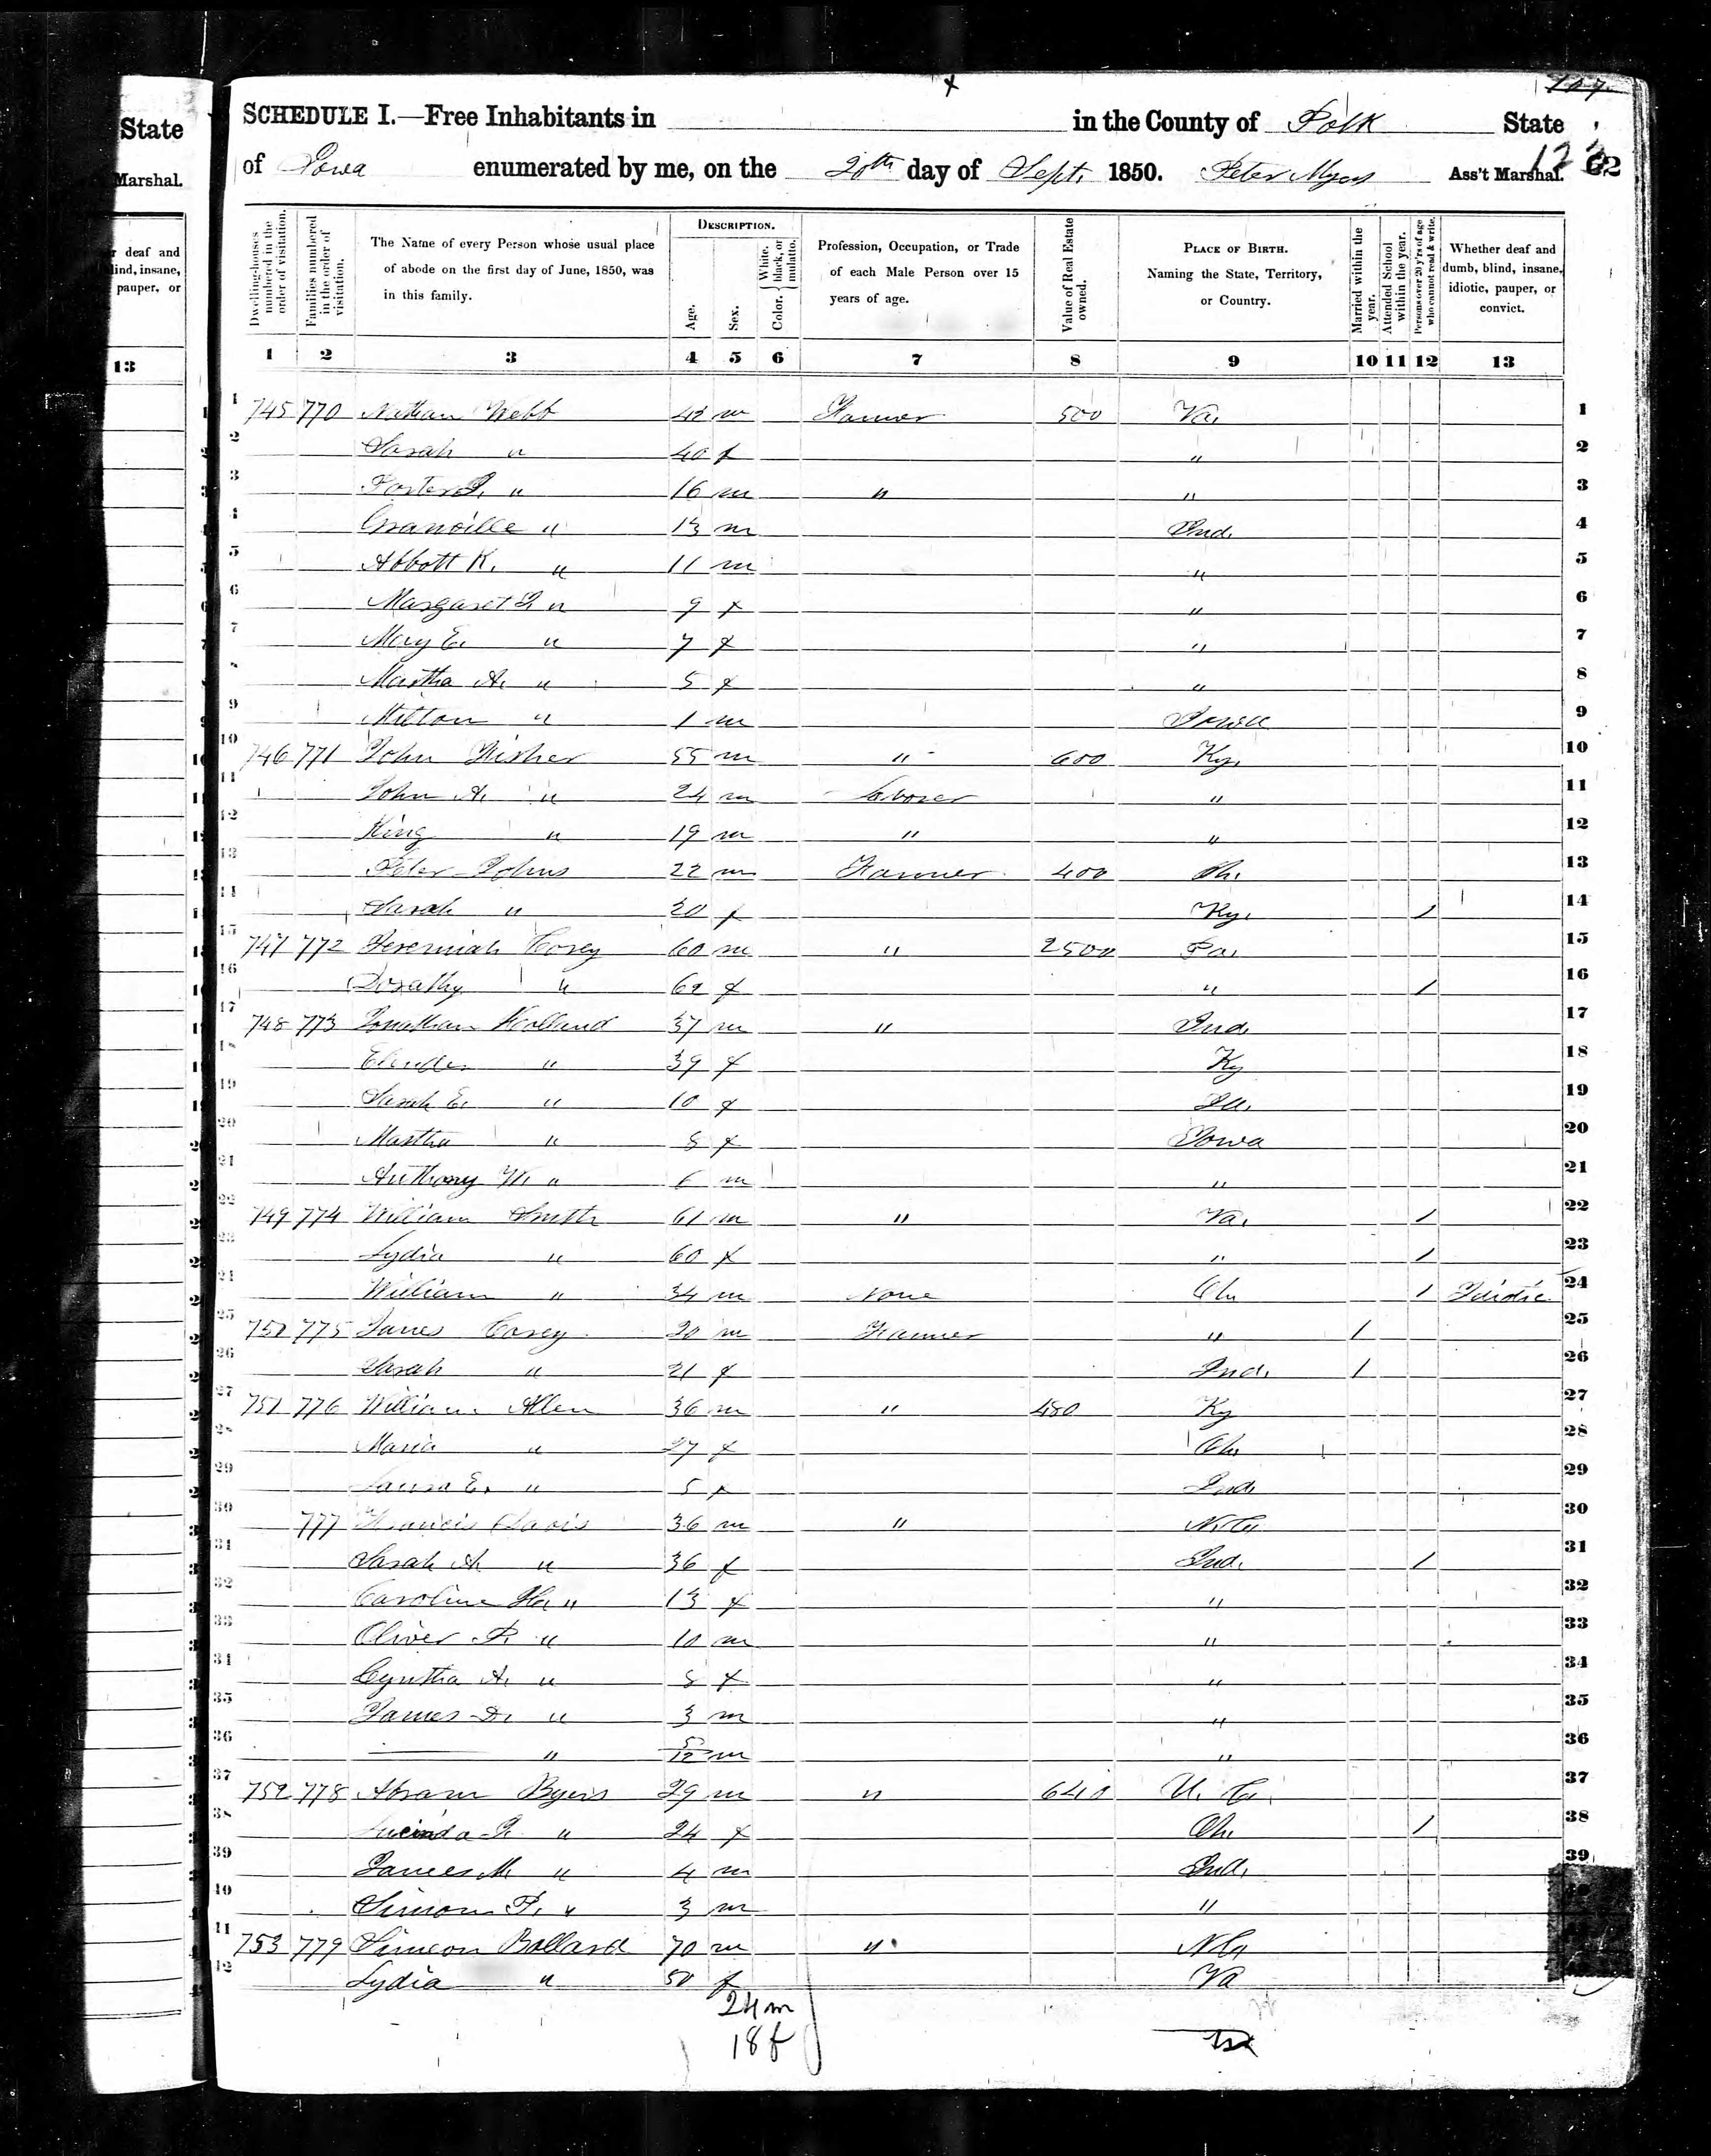 107
SCHEDULE I.—Free Inhabitants in in the County of Polk State
of Iowa enumerated by me, on the 20th day of Sept. 1850. Peter Myers Ass't Marshal.
State
Marshal.
deaf and
blind, insane,
pauper, or
13
Dwelling-houses numbered in the order of visitation.
Families numbered in the order of visitation.
The Name of every Person whose usual place of abode on the first day of June, 1850, was in this family.
DESCRIPTION.
Age.
Sex.
Color. { White, black, or mulatto.
Profession, Occupation, or Trade of each Male Person over 15 years of age.
Value of Real Estate owned.
PLACE OF BIRTH. Naming the State, Territory, or Country.
Married within the year.
Attended School within the year.
Persons over 20 y'rs of age who cannot read & write.
Whether deaf and dumb, blind, insane, idiotic, pauper, or convict.
1 2 3 4 5 6 7 8 9 10 11 12 13
1 745 770 Nathan Webb 42 m Farmer 500 Va. 1
2 Sarah " 40 f " 2
3 Porter P. " 16 m " " 3
4 Granville " 13 m Ind. 4
5 Abbott K. " 11 m " 5
6 Margaret " 9 f " 6
7 Mary E. " 7 f " 7
8 Martha A. " 5 f " 8
9 Milton " 1 m Iowa 9
10 746 771 John Fisher 55 m " 600 Ky. 10
11 John A. " 24 m Laborer " 11
12 King " 19 m " " 12
13 Peter Johns 22 m Farmer 400 Oh. 13
14 Sarah " 20 f Ky. / 14
15 747 772 Jeremiah Corey 60 m " 2500 Pa. 15
16 Dorathy " 62 f " / 16
17 748 773 Jonathan Holland 37 m " Ind. 17
18 " 39 f Ky 18
19 Sarah E. " 10 f Ill. 19
20 Martha " 8 f Iowa 20
21 Anthony W. " 6 m " 21
22 749 774 William Smith 61 m " Va. / 22
23 Lydia " 60 f " / 23
24 William " 34 m None Oh / Idiotic 24
25 750 775 James Corey 20 m Farmer " / 25
26 Sarah " 21 f Ind. / 26
27 751 776 William Allen 36 m " 480 Ky 27
28 Maria " 27 f Oh. 28
29 Laura E. " 5 f Ind. 29
30 777 Francis Davis 36 m " N.Ca. 30
31 Sarah A. " 36 f Ind. / 31
32 Caroline " 13 f " 32
33 Oliver P. " 10 m " 33
34 Cyntha A. " 8 f " 34
35 James D. " 3 m " 35
36 — " 5/12 m " 36
37 752 778 Abram Byers 29 m " 640 37
38 Lucinda " 24 f Oh. / 38
39 James M. " 4 m Ind. 39
40 Simon P. " 3 m "
41 753 779 Simeon Ballard 70 m " N.Ca
42 Lydia " 50 f Va
24 m
18 f